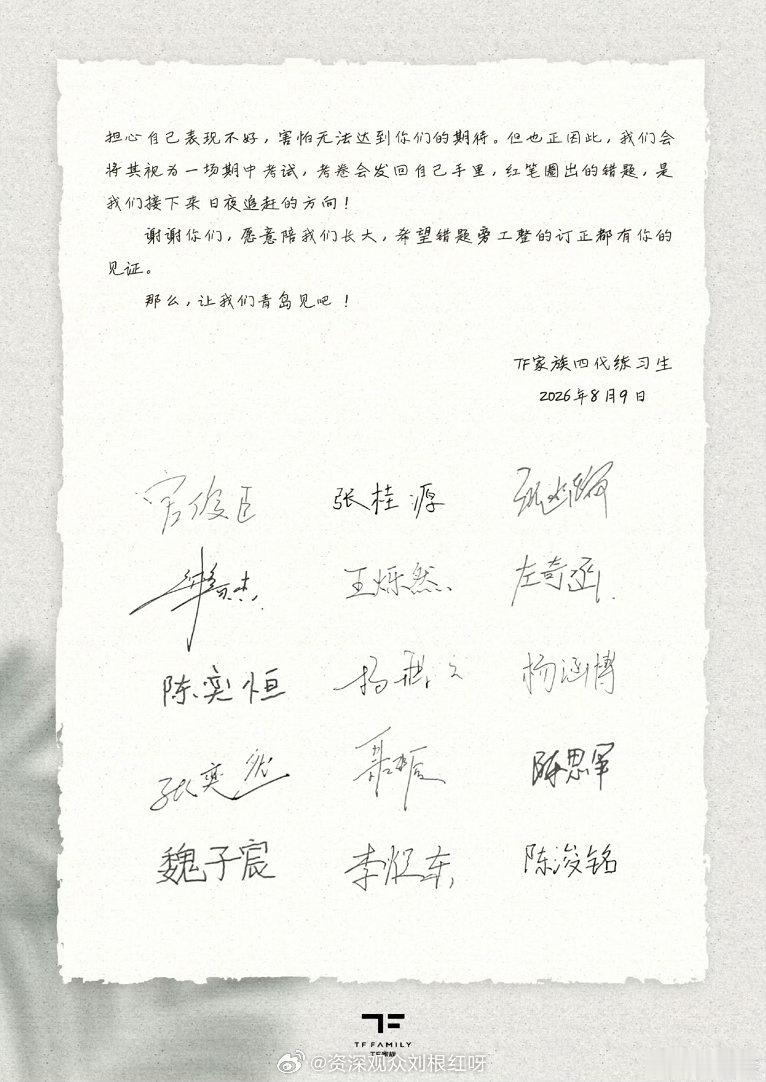 担心自己表现不好，害怕无法达到你们的期待。但也正因此，我们会
将其视为一场期中考试，考卷会发回自己手里，红笔圈出的错题，是
我们接下来日夜追赶的方向！
谢谢你们，愿意陪我们长大，希望错题旁工整的订正都有你的
见证。
那么，让我们青岛见吧！
TF家族四代练习生
2026年8月9日
官俊臣 张桂源
王烁然 左奇函
陈奕恒 杨涵博
张奕然 陈思罕
魏子宸 李煜东 陈浚铭
TF FAMILY
TF家族
@资深观众刘根红呀